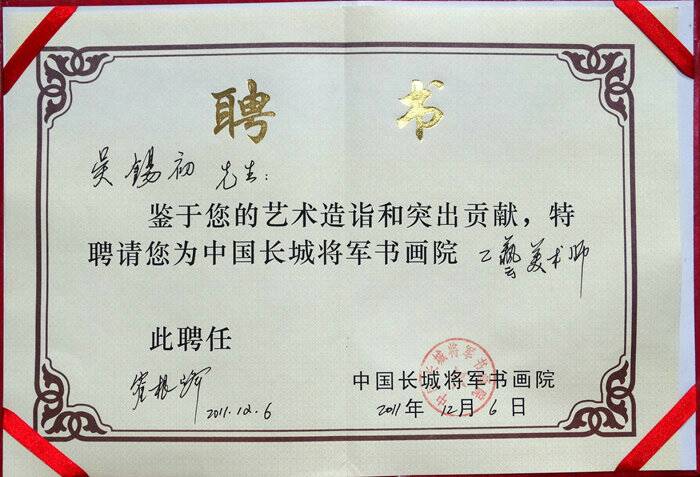 聘书
吴锡初 先生：
鉴于您的艺术造诣和突出贡献，特
聘请您为中国长城将军书画院 工藝美术师
此聘任
2011.12.6
中国长城将军书画院
2011年12月6日
中国长城将军书画院